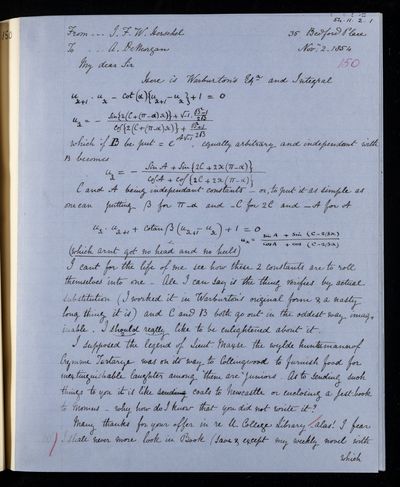 150
52. 11. 2. 1
From ... J. F. W. Herschel 35 Bedford Place
To ... A. De Morgan Nov. 2. 1854
150
My dear Sir
Here is Warburton's Eqn and Integral
u_{x+1} . u_x - cot(α){u_{x+1} - u_x} + 1 = 0
u_x = -
which if be put = equally arbitrary and independent with
B becomes
u_x = - Sin A + Sin {2C + 2x(π-α)} / Cos A + Cos {2C + 2x(π-α)}
C and A being independent constants - or, to put it as simple as
one can putting β for π-α and -C for 2C and -A for A
u_x . u_{x+1} + cotan β (u_{x+1} - u_x) + 1 = 0
u_x = sin A + sin (C-2βx) / cos A + cos (C-2βx)
(which arn't got no head and no heels)
I cant for the life of me see how these 2 constants are to roll
themselves into one - All I can say is the thing verifies by actual
substitution (I worked it in Warburton's original form & a nasty
long thing it is) and C and B both go out in the oddest way imag-
inable. I should really like to be enlightened about it.
I supposed the legend of Lieut Maybe the wylde huntsmanne of
Crymme Tartarye was on its way to Collingwood to furnish food for
inextinguishable laughter among "them are" juniors. As to sending such
things to you it is like sending coals to Newcastle or enclosing a jest book
to Momus - why how do I know that you did not write it?
Many thanks for your offer in re U. College Library - alas! I fear
I shall never more look in Book (save & except my weekly novel with
which